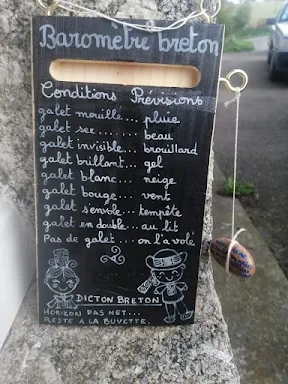 Barometre breton
Conditions Prévisions
galet mouillé... pluie
galet sec....... beau
galet invisible... brouillard
galet brillant... gel
galet blanc.... neige
galet bouge... vent
galet s'envole... tempête
galet en double... au lit
Pas de galet... on l'a volé
DICTON BRETON
HORIZON PAS NET...
RESTE A LA BUVETTE.